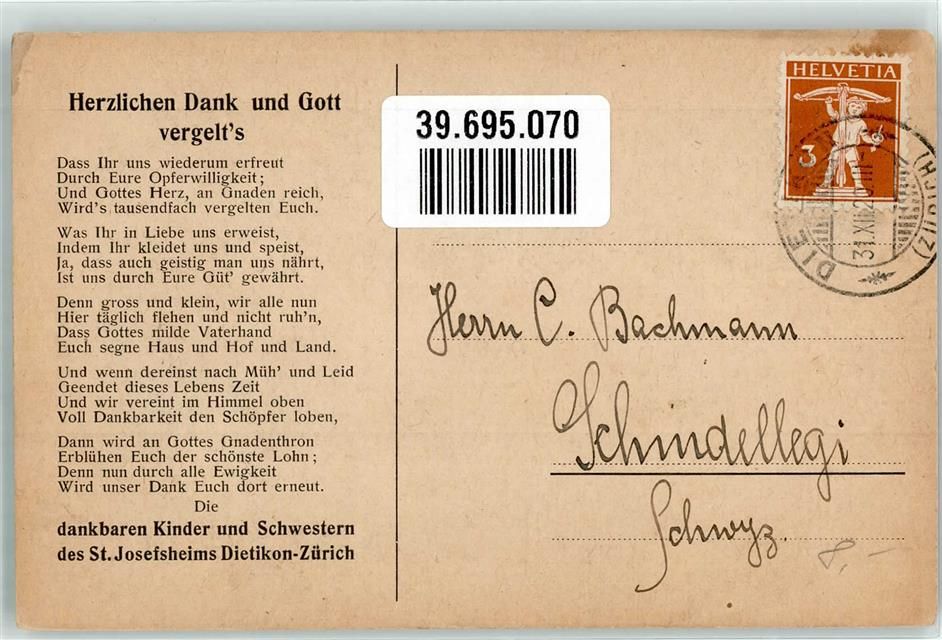 Herzlichen Dank und Gott
vergelt's
Dass Ihr uns wiederum erfreut
Durch Eure Opferwilligkeit;
Und Gottes Herz, an Gnaden reich,
Wird's tausendfach vergelten Euch.
Was Ihr in Liebe uns erweist,
Indem Ihr kleidet uns und speist,
Ja, dass auch geistig man uns nährt,
Ist uns durch Eure Güt' gewährt.
Denn gross und klein, wir alle nun
Hier täglich flehen und nicht ruh'n,
Dass Gottes milde Vaterhand
Euch segne Haus und Hof und Land.
Und wenn dereinst nach Müh' und Leid
Geendet dieses Lebens Zeit
Und wir vereint im Himmel oben
Voll Dankbarkeit den Schöpfer loben,
Dann wird an Gottes Gnadenthron
Erblühen Euch der schönste Lohn;
Denn nun durch alle Ewigkeit
Wird unser Dank Euch dort erneut.
Die
dankbaren Kinder und Schwestern
des St. Josefsheims Dietikon-Zürich
39.695.070
HELVETIA
3
(ZÜRICH)
31.XII
Herrn C. Bachmann
Schindellegi
Schwyz.
8.-